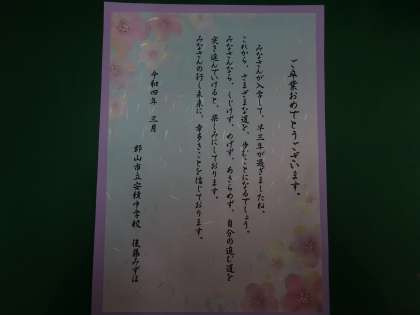 ご卒業おめでとうございます。
みなさんが入学して、早三年が過ぎましたね。
これから、さまざまな道を、歩むことになるでしょう。
みなさんなら、くじけず、めげず、あきらめず、自分の進む道を
突き進んでいけると、楽しみにしております。
みなさんの行く末来に、幸多きことを信じております。
令和四年 三月
郡山市立安積中学校 後藤みずほ